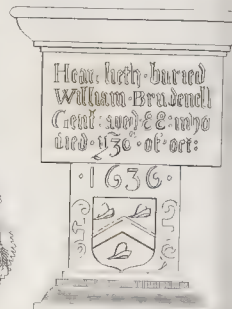 Hear: lieth · buried
William · Brudenell
Gent: aged · 88: who
died · ye 30 · of · oct:
· 1636 ·